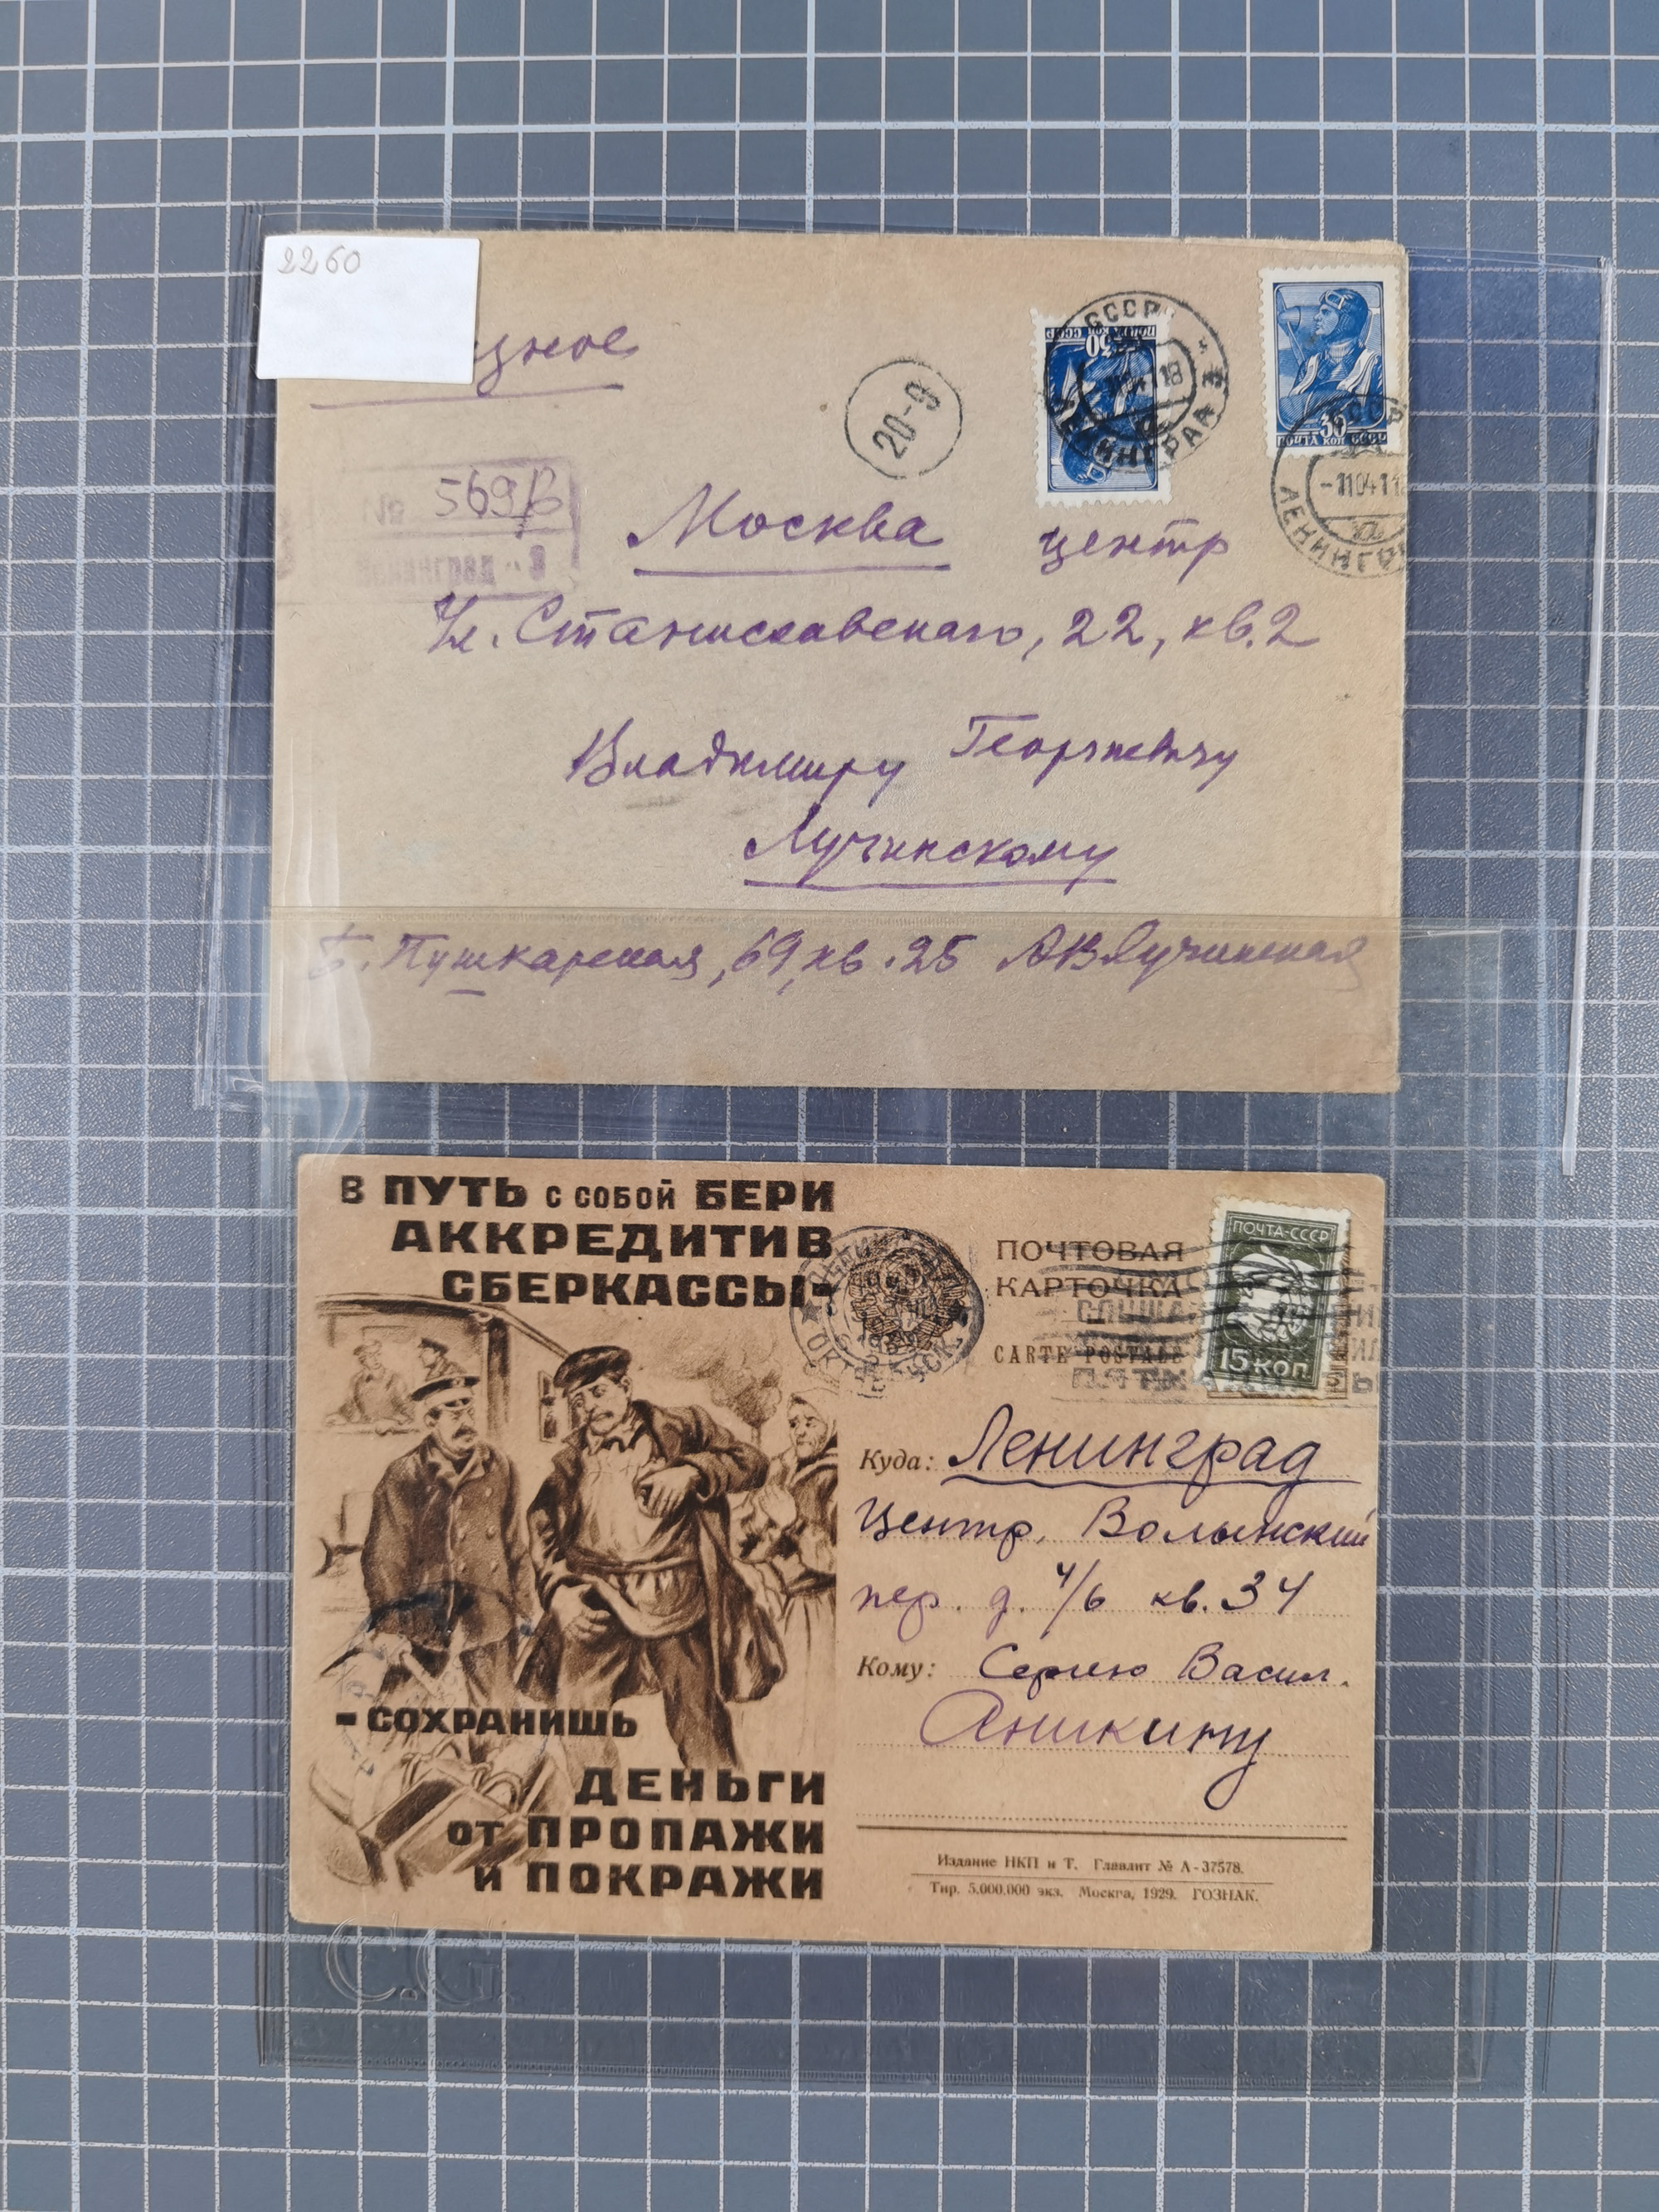 2260
20-9
СССР
ПОЧТА 30 КОП СССР
№ 569/В
Москва центр
Ул. Станиславского, 22, кв. 2
Владимиру Георгиевичу
Лучинскому
Б. Пушкарская, 69, кв. 25 АВЛучинская
В ПУТЬ С СОБОЙ БЕРИ
АККРЕДИТИВ
СБЕРКАССЫ-
-СОХРАНИШЬ
ДЕНЬГИ
ОТ ПРОПАЖИ
И ПОКРАЖИ
ПОЧТОВАЯ
КАРТОЧКА
CARTE POSTALE
ПОЧТА-СССР
15 КОП
Куда: Ленинград
Центр, Волынский
пер. д. 4/6 кв. 34
Кому: Сергею Васил.
Аникину
Издание НКП и Т. Главлит № А-37578.
Тир. 5.000.000 экз. Москва, 1929. ГОЗНАК.
C.G.